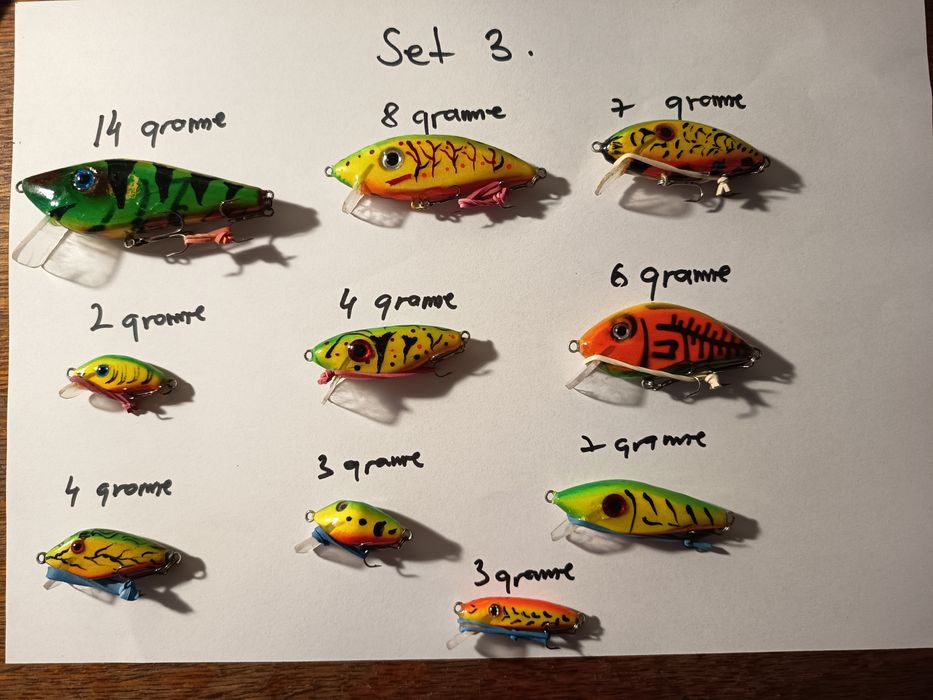 Set 3.
14 gramme
8 gramme
7 gramme
2 gramme
4 gramme
6 gramme
4 gramme
3 gramme
7 gramme
3 gramme